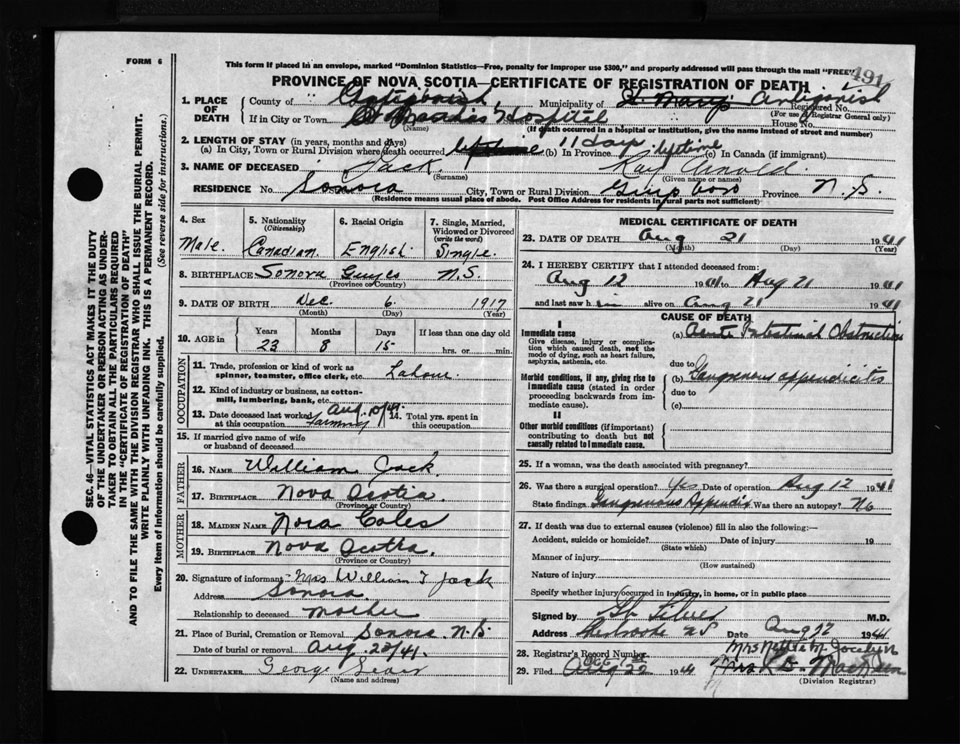 FORM 6
This form if placed in an envelope, marked "Dominion Statistics—Free, penalty for improper use $300," and properly addressed will pass through the mail "FREE"
491
PROVINCE OF NOVA SCOTIA—CERTIFICATE OF REGISTRATION OF DEATH
1. PLACE OF DEATH
County of Antigonish, Municipality of St Mary's Antigonish Registered No.
(For use of Registrar General only)
If in City or Town St Marthas Hospital House No.
(Name) (If death occurred in a hospital or institution, give the name instead of street and number)
2. LENGTH OF STAY (in years, months and days)
(a) In City, Town or Rural Division where death occurred lifetime 11 days (b) In Province lifetime (c) In Canada (if immigrant)
3. NAME OF DECEASED Jack Ray Arnold
(Surname) (Given name or names)
RESIDENCE No. Sonora City, Town or Rural Division Guys boro Province N.S.
(Residence means usual place of abode. Post Office Address for residents in rural parts not sufficient)
4. Sex Male
5. Nationality (Citizenship) Canadian
6. Racial Origin English
7. Single, Married, Widowed or Divorced (write the word) Single
8. BIRTHPLACE Sonora Guysboro N.S.
(Province or Country)
9. DATE OF BIRTH Dec. 6 1917
(Month) (Day) (Year)
10. AGE in Years 23 Months 8 Days 15 If less than one day old
hrs. or min.
OCCUPATION
11. Trade, profession or kind of work as spinner, teamster, office clerk, etc. Labour
12. Kind of industry or business, as cotton-mill, lumbering, bank, etc.
13. Date deceased last worked at this occupation Aug 10/41 farming
14. Total yrs. spent in this occupation
15. If married give name of wife or husband of deceased
FATHER
16. NAME William Jack
17. BIRTHPLACE Nova Scotia
(Province or Country)
MOTHER
18. MAIDEN NAME Nora Coles
19. BIRTHPLACE Nova Scotia
(Province or Country)
20. Signature of informant Mrs William T Jack
Address Sonora
Relationship to deceased Mother
21. Place of Burial, Cremation or Removal Sonora N.S
Date of burial or removal Aug. 23/41
22. UNDERTAKER George
(Name and address)
MEDICAL CERTIFICATE OF DEATH
23. DATE OF DEATH Aug 21 1941
(Month) (Day) (Year)
24. I HEREBY CERTIFY that I attended deceased from:
Aug 12 1941 to Aug 21 1941
and last saw him alive on Aug 21 1941
CAUSE OF DEATH
I
Immediate cause
Give disease, injury or complication which caused death, not the mode of dying, such as heart failure, asphyxia, asthenia, etc.
(a) Acute Intestinal Obstruction
due to
Morbid conditions, if any, giving rise to immediate cause (stated in order proceeding backwards from immediate cause).
(b) Gangrenous appendicitis
due to
(c)
II
Other morbid conditions (if important) contributing to death but not causally related to immediate cause.
25. If a woman, was the death associated with pregnancy?
26. Was there a surgical operation? Yes Date of operation Aug 12 1941
State findings Gangrenous Appendix Was there an autopsy? No
27. If death was due to external causes (violence) fill in also the following:—
Accident, suicide or homicide? Date of injury 19
(State which)
Manner of injury
(How sustained)
Nature of injury
Specify whether injury occurred in industry, in home, or in public place
Signed by M.D.
Address Sherbrooke NS Date Aug 22 1941
28. Registrar's Record Number Mrs Nettie M Jocelyn
29. Filed Aug 22 1941
(Division Registrar)
SEC. 46—VITAL STATISTICS ACT MAKES IT THE DUTY
OF THE UNDERTAKER OR PERSON ACTING AS UNDER-
TAKER TO OBTAIN ALL THE PARTICULARS REQUIRED
IN THE "CERTIFICATE OF REGISTRATION OF DEATH"
AND TO FILE THE SAME WITH THE DIVISION REGISTRAR WHO SHALL ISSUE THE BURIAL PERMIT.
WRITE PLAINLY WITH UNFADING INK. THIS IS A PERMANENT RECORD.
Every item of information should be carefully supplied. (See reverse side for instructions.)